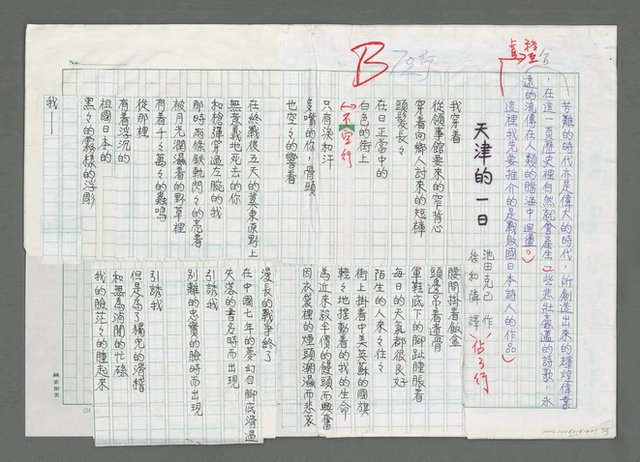 No.
B
79行
苦難的時代亦是偉大的時代，所創造出來的輝煌偉業
，在這一頁歷史裡自然就會產生一些悲壯豪邁的詩歌，永
遠的流傳在人類的腦海中迴盪。
這裡我先要推介的是戰敗國日本詩人的作品
天津的一日
池田克己 作
徐和隣 譯
佔3行
我穿着
從領事館要來的窄背心
穿着向鄉人討來的短褲
頭髮長々
在日正當中的
白色的街上
不空行
只有淚和汗
多嘴的你，骨頭
也空々的響着
在終戰後五天的冀東原野上
無意義地死去的你
和檢彈穿過左腕的我
那時兩條鉄軌閃々的亮着
被月光潤濕着的野草裡
有着千々萬々的蟲鳴
從那裡
有着浮沉的
祖國日本的
黑々的霧樣的浮彫
我——
腰間掛着飯盒
頭邊吊着遺骨
軍鞋底下的腳趾腫脹着
每日的天氣都很良好
陌生的人來々往々
街上掛着中美英蘇的國旗
輕々地搖動着的我的生命
為近來殺半價的饅頭而興奮
因衣袋裡的煙頭潮濕而悲哀
漫長的戰爭終了
在中國七年的夢幻自腳底滑過
失落的書名時而出現
引誘我
別離的忠實的臉時而出現
引誘我
但是為了獨兜的滑稽
和無為消閒的忙碌
我的臉茫々的腫起來